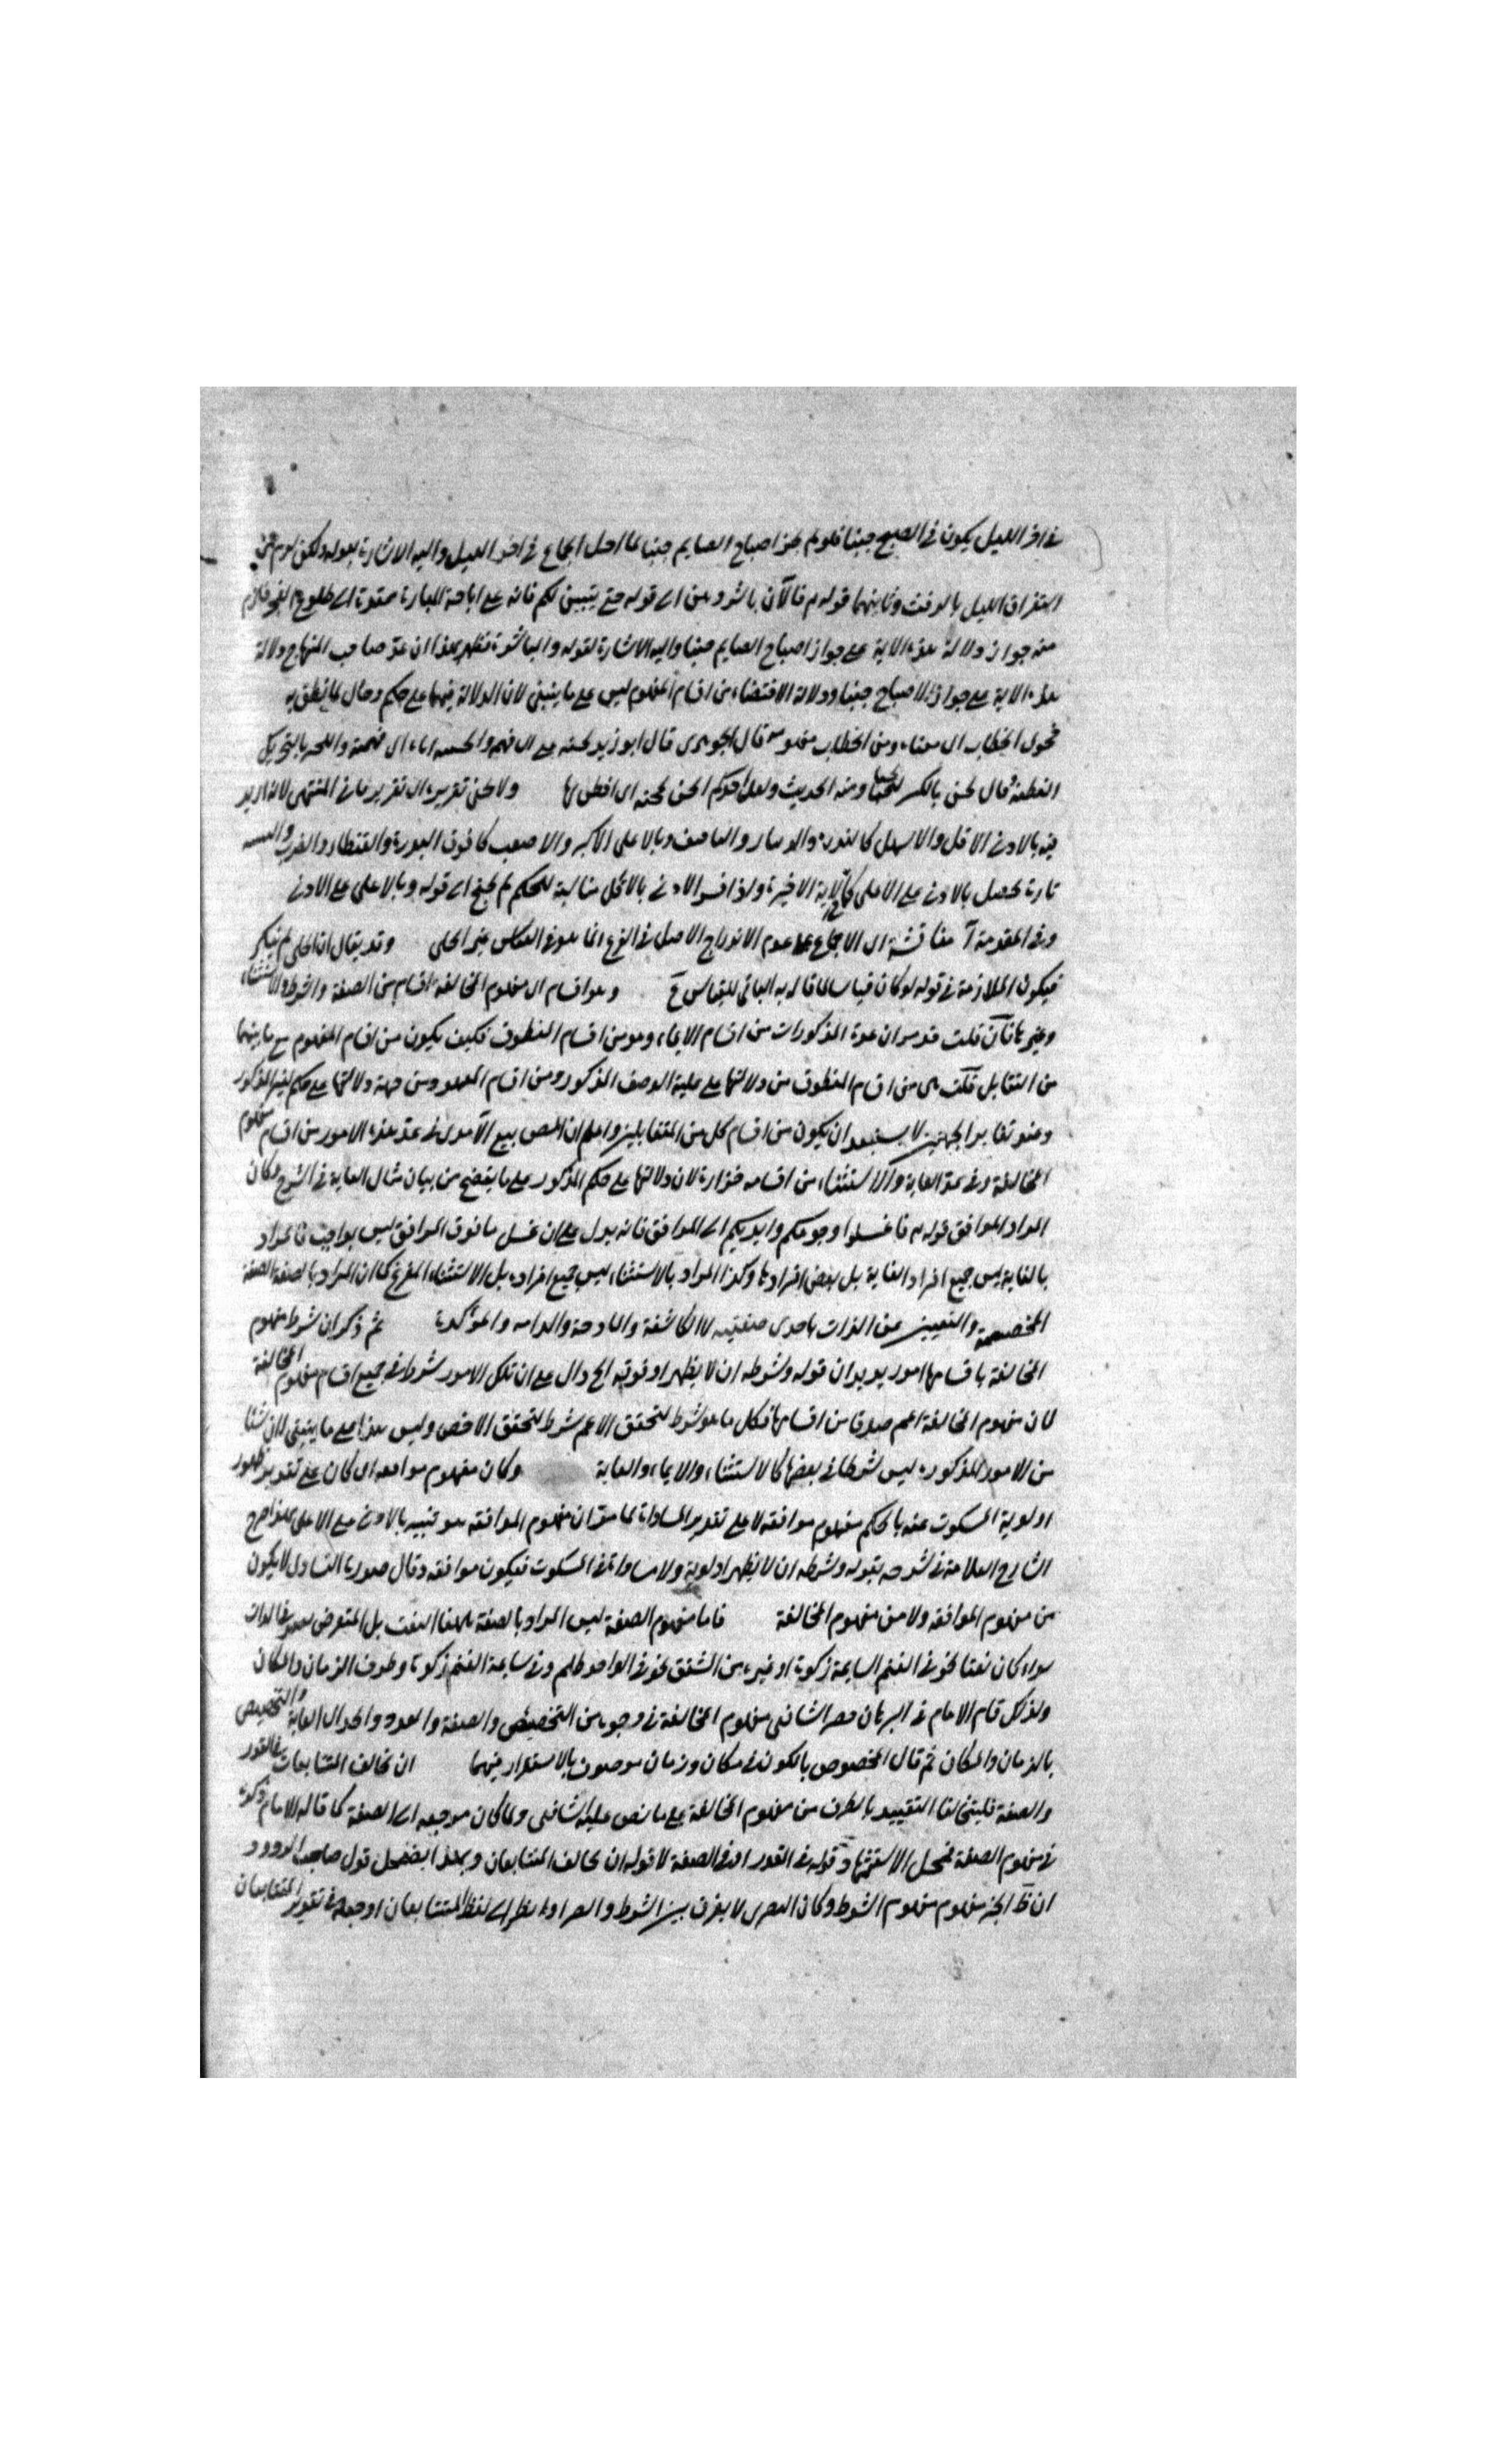 في اخر الليل يكون في الصبح جنبا فلو لم يجز اصباح الصايم جنبا لما احل الجماع في اخر الليل واليه الاشارة بقوله ولكن لزم من
استغراق الليل بالرفث وثانيهما قوله تم فالآن باشروهن الى قوله حتى يتبين لكم فانه على اباحة المباشرة ممتدة الى طلوع الفجر فلزم
منه جواز دلالة هذه الاية على جواز اصباح الصايم جنبا واليه الاشارة لقوله والمباشرة فظهر بهذا ان عد صاحب المنهاج دلالة
هذه الاية على جواز الاصباح جنبا ودلالة الاقتضاء من اقسام المفهوم ليس على ما ينبغي لان الدلالة فيهما على حكم وحال لما نطق به
فحوى الخطاب اى معناه ولحن الخطاب مفهومه قال الجوهرى قال ابو زيد لحنه عنى اى فهم والحنته اياه اى فهمته واللحن بالتحريك
الفطنة قال لحن بالكسر لحنا ومنه الحديث ولعل احدكم الحن بحجته اى افطن لها ولا يخفى تقريره ان تقرير ما في المنتهى لانه اريد
فيه بالادنى الاقل والاسهل كالذرة والدينار والتافيف وبالاعلى الاكبر والاصعب كما فوق الذرة والقنطار والضرب
تارة يحصل بالادنى على الاعلى كما في الاية الاخيرة ولذا فسر الادنى بالاقل مناسبة للحكم لم يحتج الى قوله وبالاعلى على الادنى
وفي المقدمة آ مناقشة اى الاجماع على عدم الاندراج الاصل في الفرع انما هو في القياس غير الجلى وقد يقال ان الجلى لم ينكر
فيكون الملازمة في قوله لو كان قياسا لما قال به النافي للقياس ح وهو اقسام اى مفهوم المخالفة اقسام من الصفة والشرط والاستثناء
وغيرها فان قلت قد مر ان عدة المذكورات من اقسام الايماء وهو من اقسام المنطوق فكيف يكون من اقسام المفهوم مع ما بينهما
من التقابل قلت هى من اقسام المنطوق من دلالتها على علية الوصف المذكور ومن اقسام المفهوم من جهة دلالتها على حكم لغير المذكور
وعند تغاير الجهتين لا يستبعد ان يكون من اقسام كل من المتقابلين واعلم ان المص تبع الآمدى في عد هذه الامور من اقسام مفهوم
المخالفة وفي عد الغاية والاستثناء من اقسامه حزازة لان دلالتها على حكم المذكور على ما يتضح من بيان مثال الغاية في الشرح وكان
المراد الموافق قوله تم فاغسلوا وجوهكم وايديكم الى المرافق فانه يدل على ان غسل ما فوق المرافق ليس بواجب فالمراد
بالغاية ليس جميع افراد الغاية بل بعض افرادها وكذا المراد بالاستثناء ليس جميع افراده بل الاستثناء المفرغ كما ان المراد بالصفة الصفة
المخصصة والتعيين عن الذات باحدى صفتيه لا الكاشفة والمادحة والذامه والمؤكدة ثم ذكر ان شرط مفهوم
المخالفة باقسامها امور يريد ان قوله وشرطه ان لا يظهر اولوية الخ دال على ان تلك الامور شرط في جميع اقسام مفهوم المخالفة
لان مفهوم المخالفة اعم صدقا من اقسامها فكل ما هو شرط لتحقق الاعم شرط لتحقق الاخص وليس هذا على ما ينبغي لان شيئا
من الامور المذكورة ليس شرطا في بعضها كالاستثناء والايماء والغاية وكان مفهوم موافقة اى كان على تقدير ظهور
اولوية المسكوت عنه بالحكم مفهوم موافقة لا على تقدير المساواة لما مر ان مفهوم الموافقه هو تنبيه بالادنى على الاعلى بهذا صرح
الشارح العلامة في شرحه بقوله وشرطه ان لا يظهر اولوية ولا مساواة في المسكوت فيكون موافقه وقال صورة التساوى لا يكون
من مفهوم الموافقه ولا من مفهوم المخالفة فاما مفهوم الصفة ليس المراد بالصفة ههنا النعت بل المتعرض لقيد في الذات
سواء كان نعتا نحو في الغنم السايمة زكوة او غيره من المشتق نحو لى الواجد ظلم وفي سايمة الغنم زكوة وظرف الزمان والمكان
ولذلك قام الامام في البرهان حصر الشافعى مفهوم المخالفة في وجوه من التخصيص والصفة والعدد والحد اى الغاية والتخصيص
بالزمان والمكان ثم قال المخصوص بالكون في مكان وزمان موصوف بالاستقرار فيهما ان تخالف المتبايعان في القدر
والصفة فليتحالفا التقييد بالظرف من مفهوم المخالفة على ما نص عليه الشافعى ولما كان مرجعه الى الصفة كما قاله الامام ذكره
في مفهوم الصفة فمحل الاستشهاد قوله في القدر او في الصفة لا قوله ان تخالف المتبايعان وبهذا يضمحل قول صاحب الردود
ان ظ الخبر مفهوم مفهوم الشرط وكان البصرى لا يفرق بين الشرط والصفة او نظر الى لفظ المتبايعان او جعله في تقدير المتبايعان